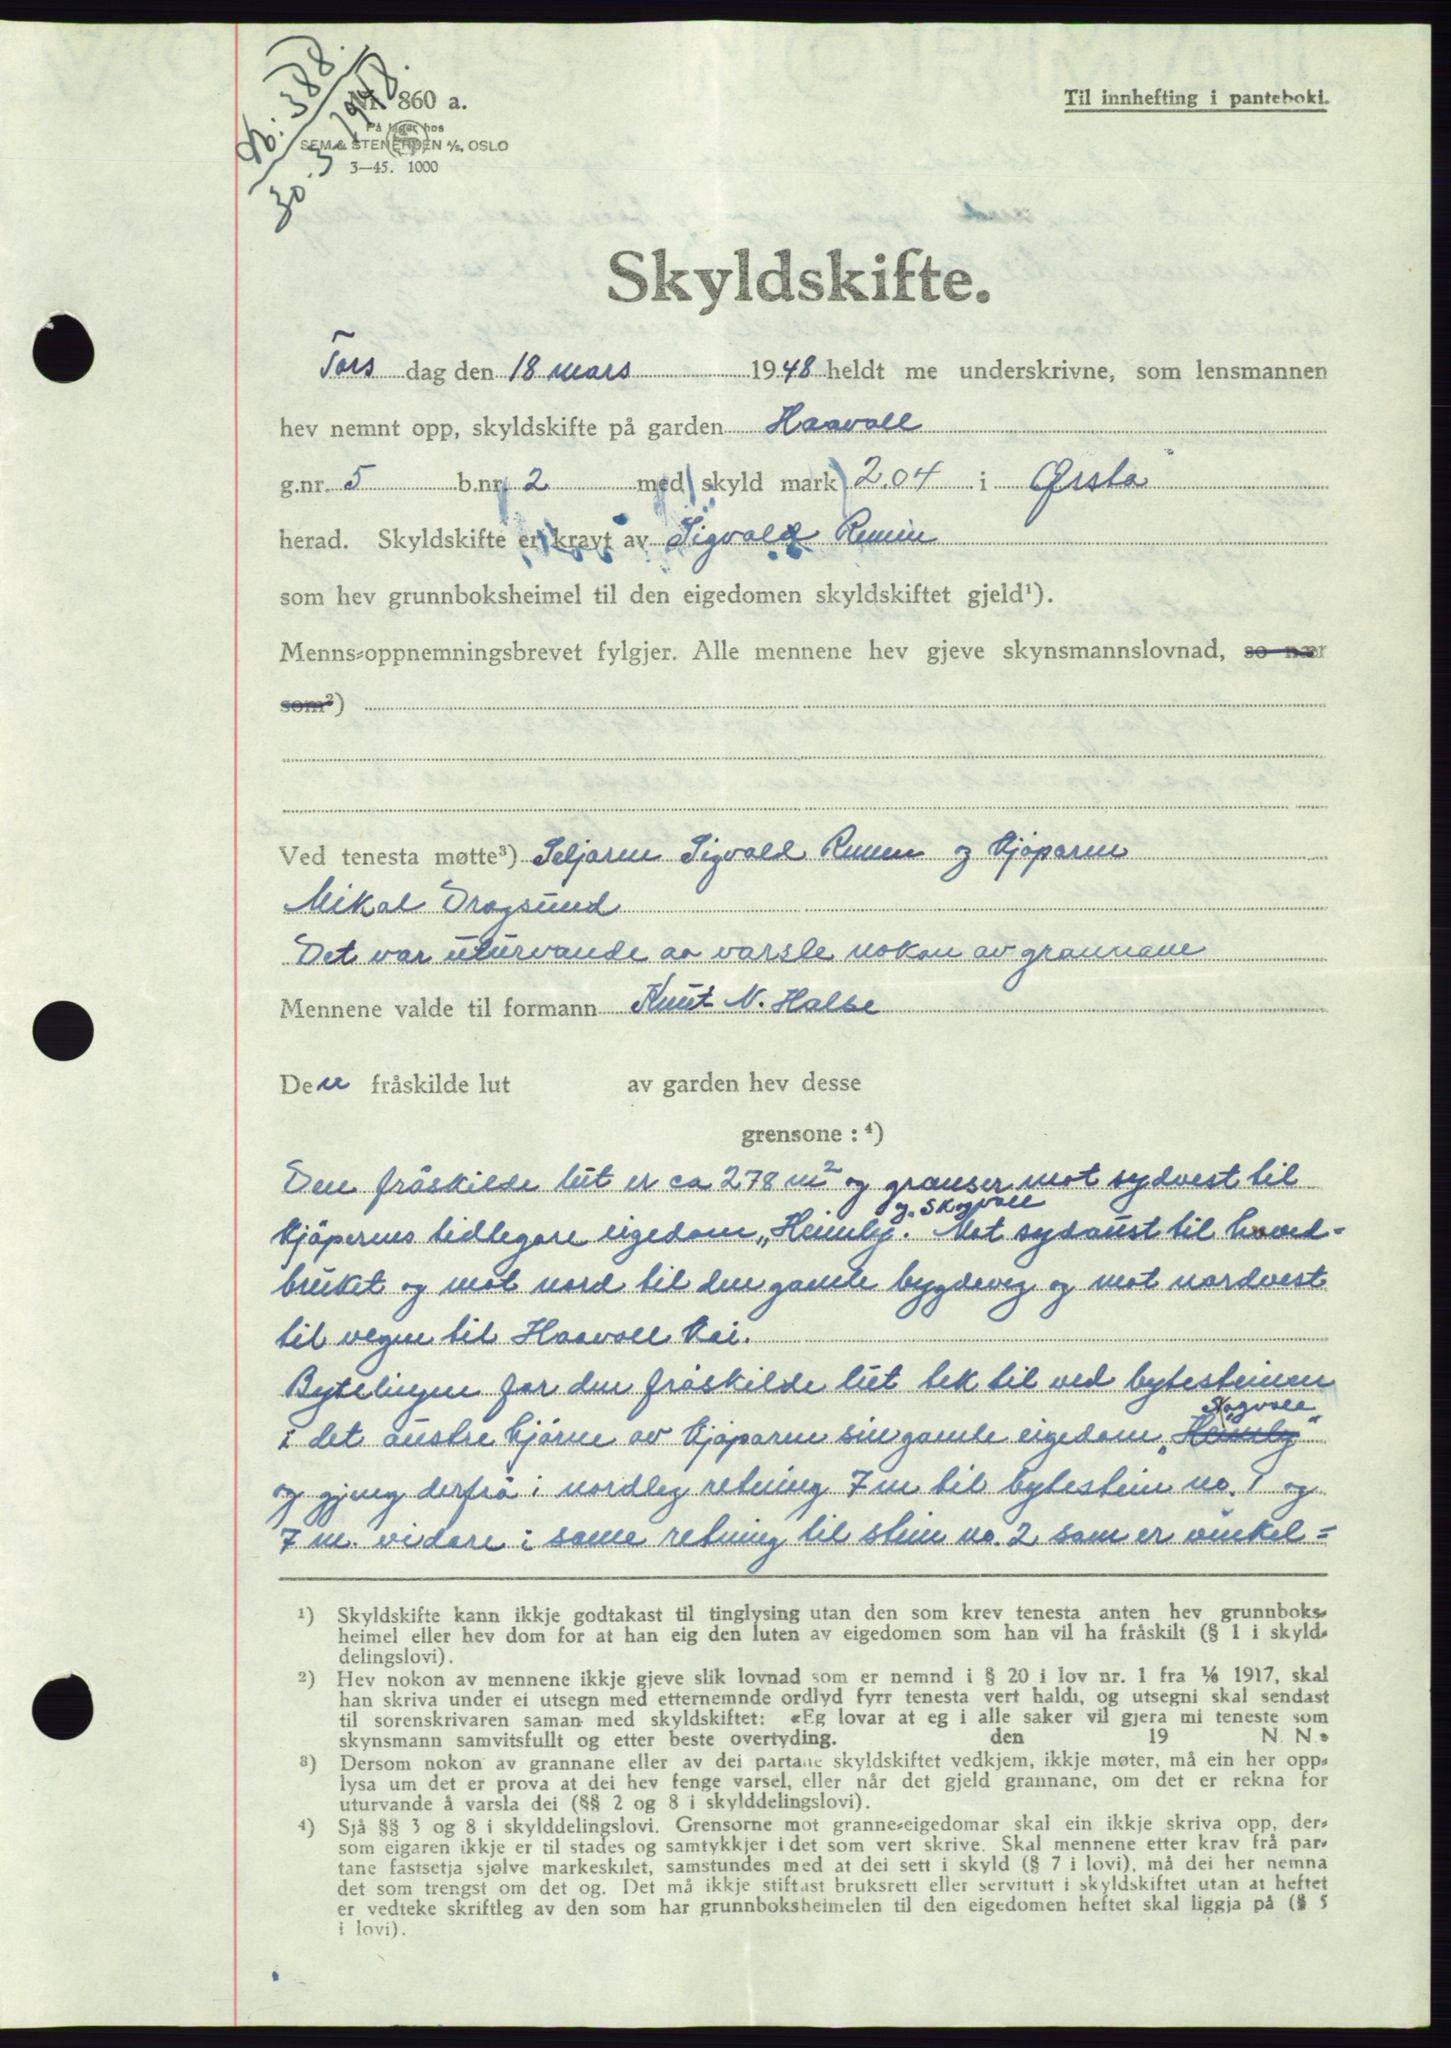 Nr. 388.
30.3.1948.
Nr. 860 a.
På lager hos
SEM & STENERSEN A/S, OSLO
3—45. 1000
Til innhefting i panteboki.
Skyldskifte.
Tors dag den 18 mars 1948 heldt me underskrivne, som lensmannen
hev nemnt opp, skyldskifte på garden Haavoll
g.nr. 5 b.nr. 2 med skyld mark 2.04 i Ørsta
herad. Skyldskifte er kravt av Sigvald
som hev grunnboksheimel til den eigedomen skyldskiftet gjeld¹).
Menns-oppnemningsbrevet fylgjer. Alle mennene hev gjeve skynsmannslovnad, so nær
som²)
Ved tenesta møtte³) Seljaren Sigvald og Kjøparen
Mikal Dragsund
Det var uturvande aa varsle nokon av grannane
Mennene valde til formann Knut N. Halse
Den fråskilde lut av garden hev desse
grensone : ⁴)
Den fråskilde lut er ca 278 m² og grenser mot sydvest til
og Skogvoll
Kjøperens tidlegare eigedom „Heimly. Mot sydaust til hoved-
bruket og mot nord til den gamle bygdeveg og mot nordvest
til vegen til Haavoll Kai.
Bytelinjen for den fråskilde lut tek til ved bytesteinen
Skogvoll
i det austre hjørne av Kjøparen sin gamle eigedom „Heimly"
og gjeng derfrå i nordleg retning 7 m til bytestein no. 1 og
7 m. vidare i same retning til stein no. 2 som er vinkel-
¹) Skyldskifte kann ikkje godtakast til tinglysing utan den som krev tenesta anten hev grunnboks-
heimel eller hev dom for at han eig den luten av eigedomen som han vil ha fråskilt (§ 1 i skyld-
delingslovi).
²) Hev nokon av mennene ikkje gjeve slik lovnad som er nemnd i § 20 i lov nr. 1 fra 1/6 1917, skal
han skriva under ei utsegn med etternemnde ordlyd fyrr tenesta vert haldi, og utsegni skal sendast
til sorenskrivaren saman med skyldskiftet: «Eg lovar at eg i alle saker vil gjera mi teneste som
skynsmann samvitsfullt og etter beste overtyding. den 19 N. N.»
³) Dersom nokon av grannane eller av dei partane skyldskiftet vedkjem, ikkje møter, må ein her opp-
lysa um det er prova at dei hev fenge varsel, eller når det gjeld grannane, om det er rekna for
uturvande å varsla dei (§§ 2 og 8 i skylddelingslovi).
⁴) Sjå §§ 3 og 8 i skylddelingslovi. Grensorne mot granne-eigedomar skal ein ikkje skriva opp, der-
som eigaren ikkje er til stades og samtykkjer i det som vert skrive. Skal mennene etter krav frå par-
tane fastsetja sjølve markeskilet, samstundes med at dei sett i skyld (§ 7 i lovi), må dei her nemna
det som trengst om det og. Det må ikkje stiftast bruksrett eller servitutt i skyldskiftet utan at heftet
er vedteke skriftleg av den som har grunnboksheimelen til den eigedomen heftet skal liggja på (§ 5
i lovi).